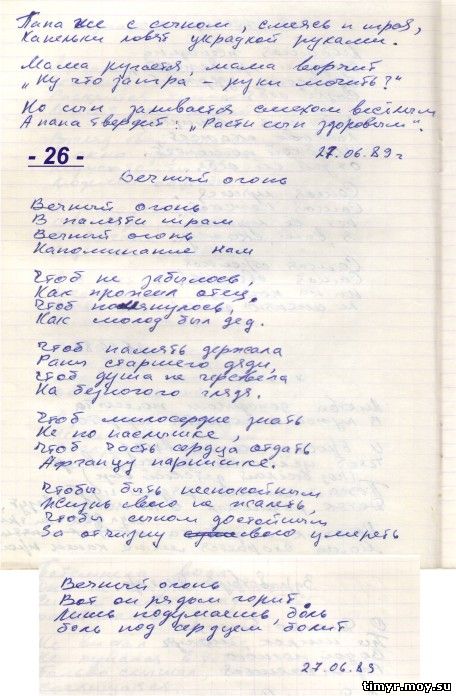 Папа же с сыном, смеясь и играя,
Капельки ловят украдкой руками.
Мама ругается, мама ворчит
„Ну что за игра – руки мочить?"
Но сын заливается смехом весёлым
А папа твердит: „Расти сын здоровым".
27.06.89 г
- 26 -
Вечный огонь
Вечный огонь
В памяти шрам
Вечный огонь
Напоминание нам
Чтоб не забылось,
Как прожил отец,
Чтоб помянулось,
Как молод был дед.
Чтоб память держала
Раны старшего дяди,
Чтоб душа не черствела
На безногого глядя.
Чтоб милосердие знать
Не по наслышке,
Чтоб часть сердца отдать
Афганцу парнишке.
Чтобы быть неспокойным
Жизнь свою не жалеть,
Чтобы сыном достойным
За отчизну свою умереть
Вечный огонь
Вот он рядом горит,
Лишь подумаешь, боль
боль под сердцем болит
27.06.89
timyr.moy.su